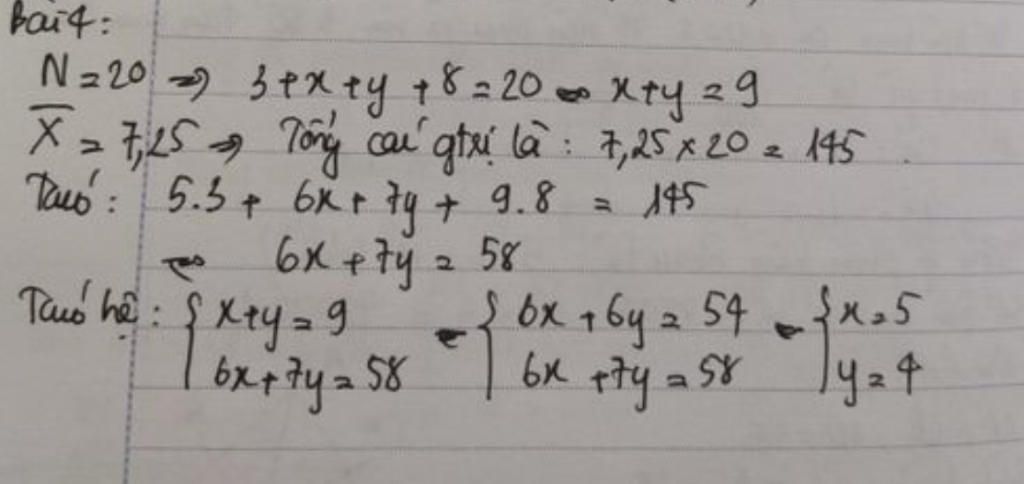 Bài 4:
N = 20 => 3 + x + y + 8 = 20 <=> x + y = 9
X̄ = 7,25 => Tổng các gtrị là : 7,25 × 20 = 145
Ta có : 5.3 + 6x + 7y + 9.8 = 145
<=> 6x + 7y = 58
Ta có hệ : { x + y = 9 <=> { 6x + 6y = 54 <=> { x = 5
6x + 7y = 58 6x + 7y = 58 y = 4